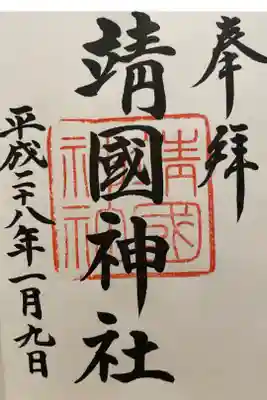 奉拝
靖國神社
平成二十八年一月九日